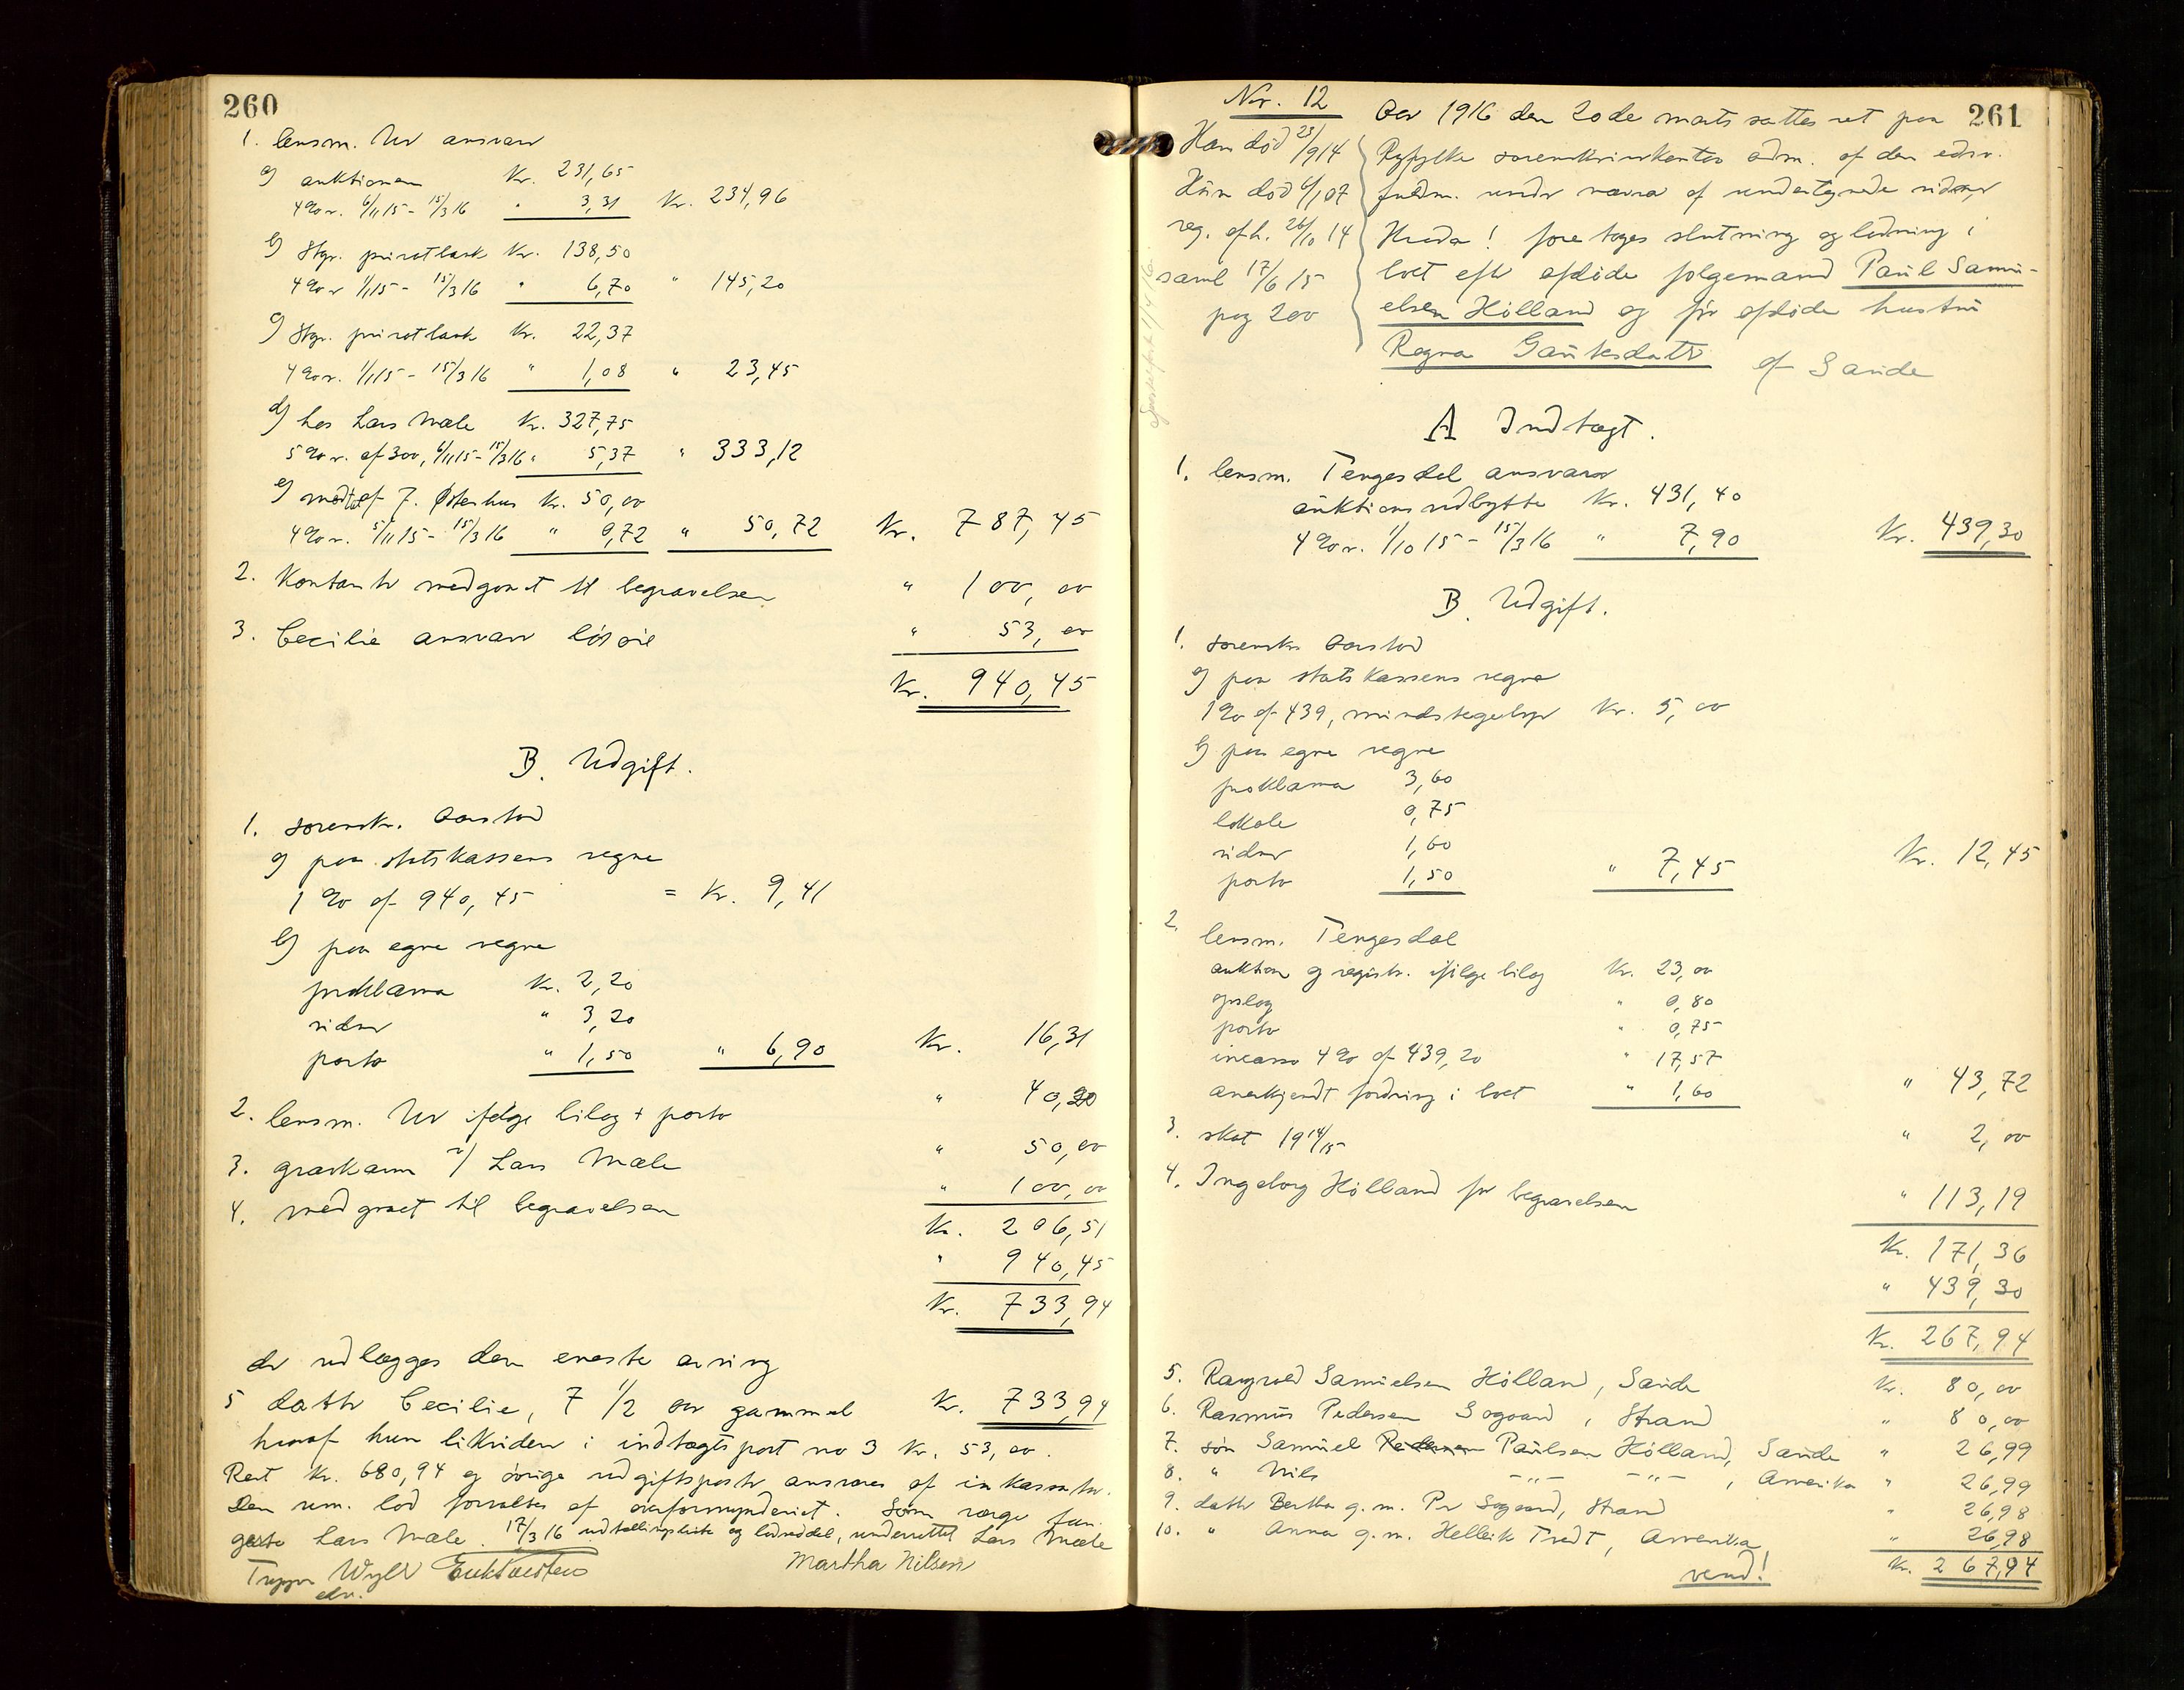 260
1. lensm. Ur ansvarer
a) auktionen Kr. 231,65
4% r. 6/11 15 - 15/3 16 " 3,31 Kr. 234,96
b) Stgr. privatbank Kr. 138,50
4% r 1/1 15 - 15/3 16 " 6,70 " 145,20
c) Stgr. privatbank Kr. 22,37
4% r. 1/1 15 - 15/3 16 " 1,08 " 23,45
d) hos Lars Mæle Kr. 327,75
5% r. af 300, 6/11 15 - 15/3 16 " 5,37 " 333,12
e) modt af J. Østerhus Kr. 50,00
4% r. 5/11 15 - 15/3 16 " 0,72 " 50,72 Kr. 787,45
2. Kontanter medgaaet til begravelsen " 100,00
3. Cecilie ansvarer løsøre " 53,00
Kr. 940,45
B. Udgift.
1. sorenskr. Aarstad
a) paa statskassens regne
1% af 940,45 = Kr. 9,41
b) paa egne regne
proklama Kr. 2,20
vidner " 3,20
porto " 1,50 " 6,90 Kr. 16,31
2. lensm. Ur ifølge bilag + porto " 40,20
3. gravkarm v/ Lars Mæle " 50,00
4. medgaaet til begravelsen " 100,00
Kr. 206,51
" 940,45
Kr. 733,94
der udlægges den eneste arving
5 datter Cecilie, 7 1/2 aar gammel Kr. 733,94
hvoraf hun likvideres i indtægtspost no 3 Kr. 53,00.
Rest Kr. 680,94 og øvrige udgiftsposter ansvares af inkassator.
Den um. lod forvaltes af overformynderiet. Som værge fun-
gerte Lars Mæle. 17/3 16 udtællingsliste og lodseddel, underrettet Lars Mæle
Trygve Wyller
edsv.
Martha Nilsen
Nr. 12 Aar 1916 den 20de marts sattes ret paa 261
Han død 23/9 14 Ryfylke sorenskriverkontor adm. af den edsv.
Hun død 6/1 07 fuldm. under nærvær af undertegnede vidner
reg. afh. 26/10 14 Hvorda! foretages slutning og lodning i
saml 17/6 15 boet efter afdøde følgemand Paul Samu-
pag 200 elsen Hølland og før afdøde hustru
Ragna Gautesdatter af Sande
A Indtægt.
1. lensm. Tengesdal ansvarer
auktionsudbytte Kr. 431,40
4% r. 1/10 15 - 15/3 16 " 7,90 Kr. 439,30
B. Udgift.
1. sorenskr Aarstad
a) paa statskassens regne
1% af 439, mindstegebyr Kr. 5,00
b) paa egne regne
proklama 3,60
lokale 0,75
vidner 1,60
porto 1,50 " 7,45 Kr. 12,45
2. lensm. Tengesdal
auktion og registr. ifølge bilag Kr. 23,00
opslag " 0,80
porto " 0,75
incasso 4% af 439,20 " 17,57
anerkjendt fordring i boet " 1,60 " 43,72
3. skat 1914/15 " 2,00
4. Ingeborg Hølland for begravelsen " 113,19
Kr. 171,36
" 439,30
Kr. 267,94
5. Rangvald Samuelsen Hølland, Sande Kr. 80,00
6. Rasmus Pedersen Sogaard, Strand " 80,00
7. søn Samuel Pedersen Paulsen Hølland, Sande " 26,99
8. " Nils -"- -"-, Amerika " 26,99
9. datter Bertha g.m. Per Sogaard, Strand " 26,98
10. " Anna g.m. Helleik Tvedt, Amerika " 26,98
vend! Kr. 267,94